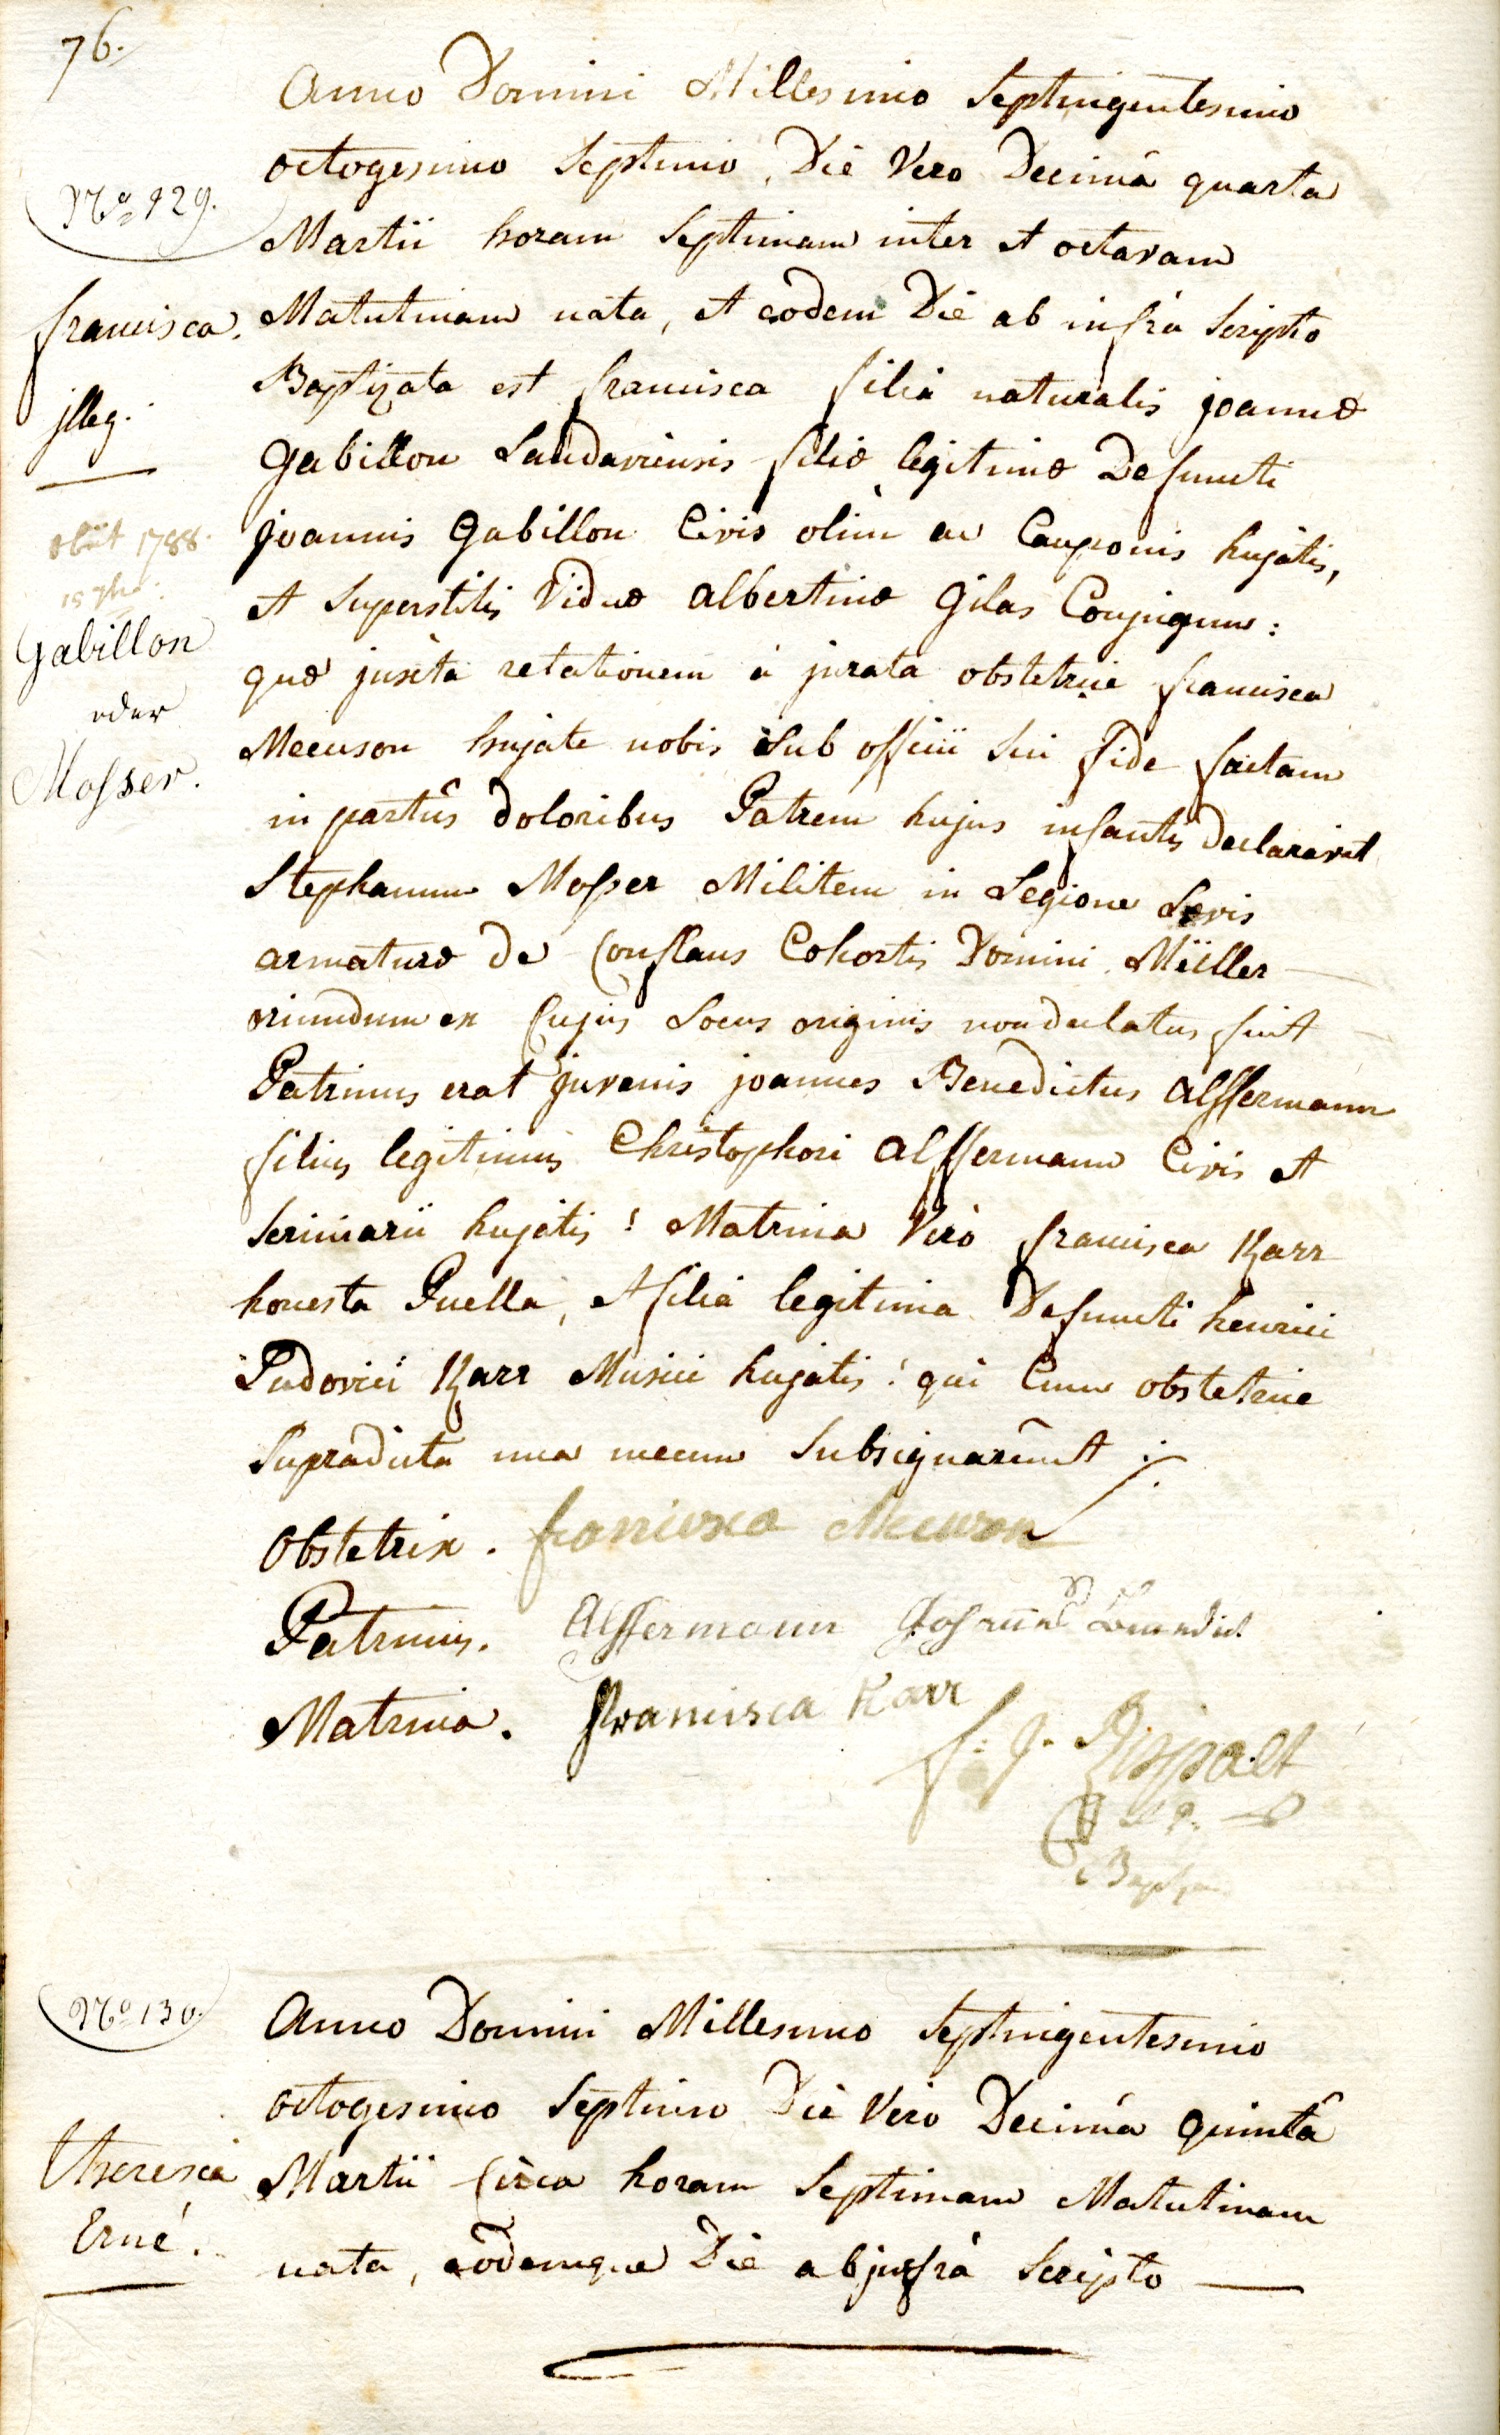 76.
Anno Domini Millesimo Septingentesimo
octogesimo Septimo, Die Vero Decimâ quarta
Nº 129.
Martii horam Septimam inter et octavam
francisca.
Matutinam nata, et eodem Die ab infrà Scripto
Baptizata est francisca filia naturalis joannæ
jlleg.
Gabillon Landaviensis filiæ legitimæ Defuncti
obiit 1788.
joannis Gabillon Civis olim ac Cauponis hujatis,
et Superstitis Viduæ Albertinæ Gilas Conjugum:
Gabillon
quæ juxta relationem à jurata obstetrice francisca
oder
Mecuson hujate nobis Sub officii Sui fide factam
Mosser.
in partûs doloribus Patrem hujus infantis Declaravit
Stephanum Mosser Militem in Legione Levis
armaturæ de Conflans Cohortis Domini Müller
oriundum ex Cujus Locus originis non delatus fuit
Patrinus erat juvenis joannes Benedictus Alffermann
filius legitimus Christophori Alffermann Civis et
Scriniarii hujatis: Matrina Verò francisca Karr
honesta Puella, et filia legitima Defuncti henrici
Ludovici Karr Musici hujatis: qui Cum obstetrice
Supradicta una mecum Subsignarûnt ·/.
Obstetrix. francisca Mecuson
Patrinus. Alffermann Johann Benedict
Matrina. Francisca Karr
f: J.
Nº 130.
Anno Domini Millesimo Septingentesimo
octogesimo Septimo Die Vero Decimâ Quintâ
Theresia
Martii Circa horam Septimam Matutinam
Erné.
nata, eôdemque Die ab jnfrà Scripto